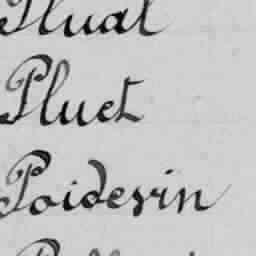 Pluat
Pluet
Poidevin